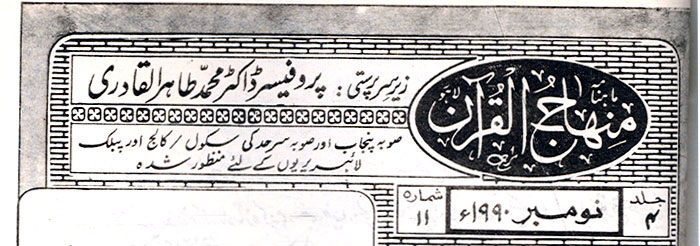 ماہنامہ
منہاج القرآن لاہور
زیر سرپرستی: پروفیسر ڈاکٹر محمد طاہر القادری
صوبہ پنجاب اور صوبہ سرحد کی سکول / کالج اور پبلک
لائبریریوں کے لئے منظور شدہ
جلد ۴
نومبر ۱۹۹۰ء
شمارہ ۱۱